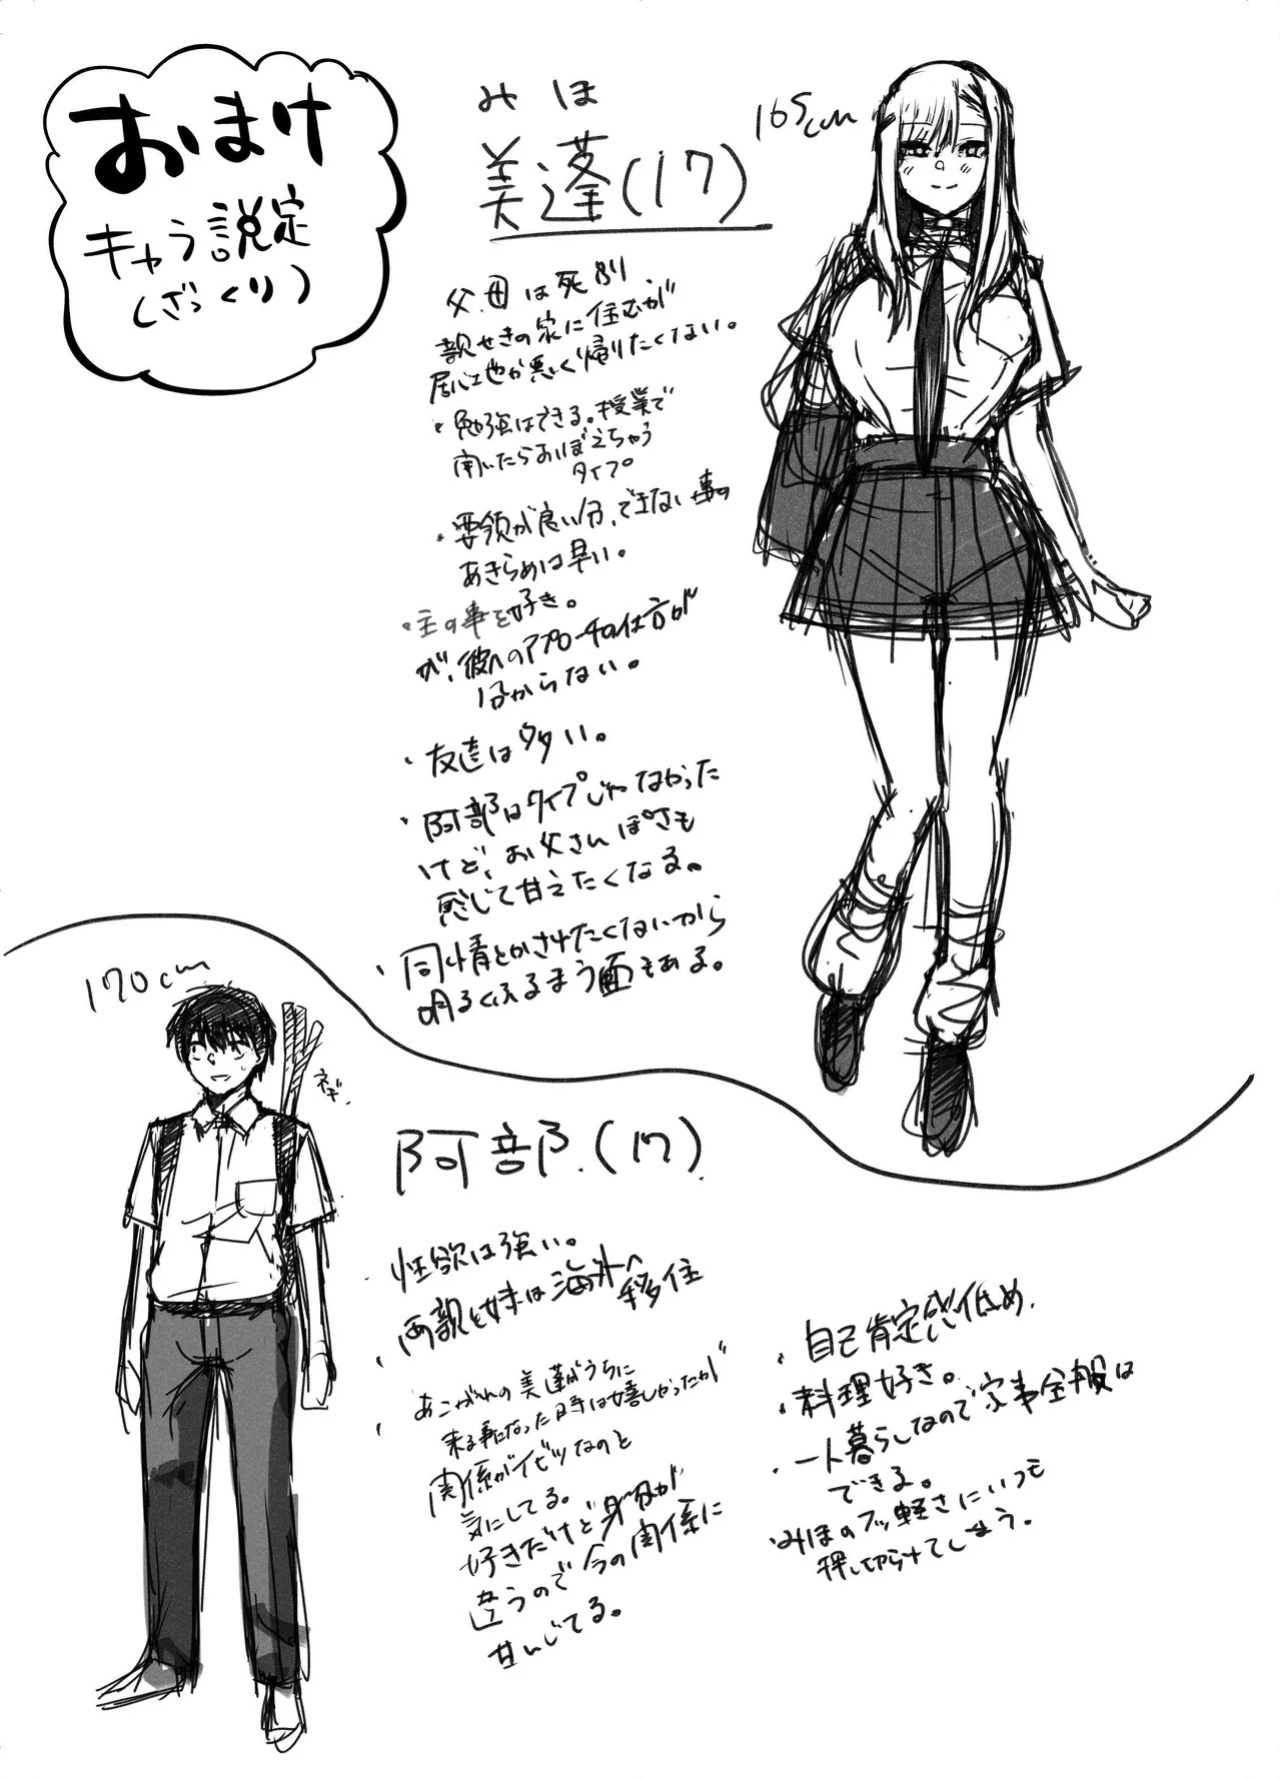 おまけ
キャラ説定
(ざっくり)
みほ
美蓬(17)
165cm
父.母は死別
親せきの家に住むが
居心地が悪く帰りたくない。
・勉強はできる。授業で
聞いたらおぼえちゃう
タイプ
・要領が良い分、できない事の
あきらめは早い。
・主の事を好き。
が、彼へのアプローチの仕方が
分からない。
・友達は多い。
・阿部はタイプじゃなかった
けど、お父さんぽさも
感じて甘えたくなる。
・同情とかされたくないから
明るくふるまう面もある。
170cm
ネギ
阿部.(17)
・性欲は強い。
・両親と妹は海外へ移住
・あこがれの美蓬がうちに
来る事になった時は嬉しかったが
関係がイビツなのと
気にしてる。
好きだけど身分が
違うので今の関係に
甘んじてる。
・自己肯定感低め.
・料理好き。
・一人暮らしなので家事全般は
できる。
・みほのフッ軽さにいつも
押し切られてしまう。